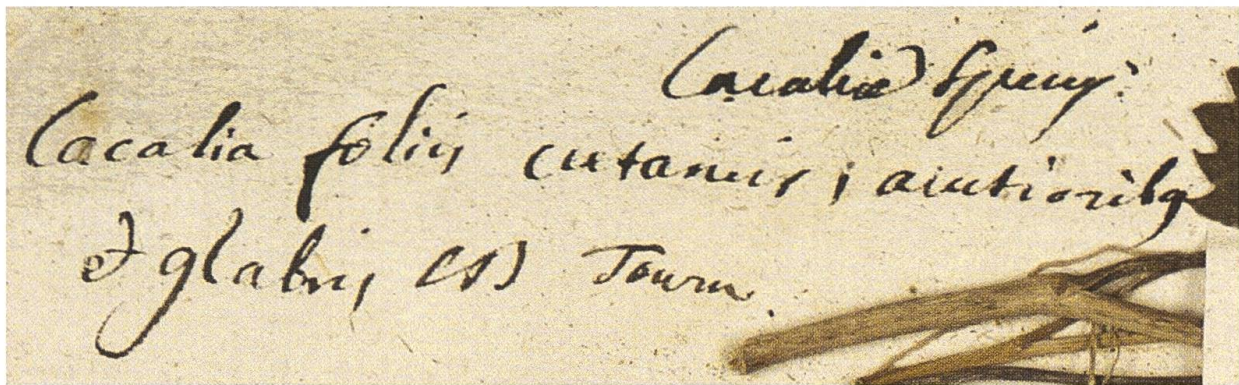 Cacaliæ Speciẽ.
Cacalia foliis cutaneis, acutioribq
& glabris CB Tourn